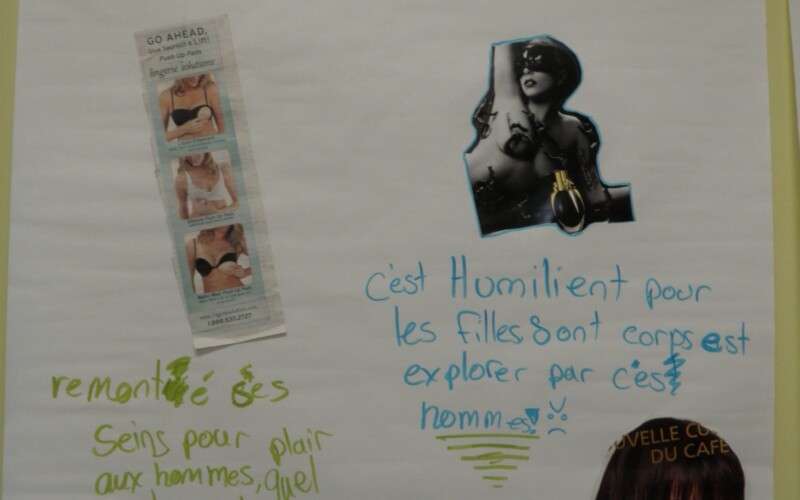 GO AHEAD,
Give Yourself a Lift!
Push-Up Pads
lingerie solutions
1.866.530.2727
c'est Humilient pour
les filles Sont corps est
explorer par c'es
hommes!
remonté ses
Seins pour plair
aux hommes, quel
UVELLE CU
DU CAFÉ